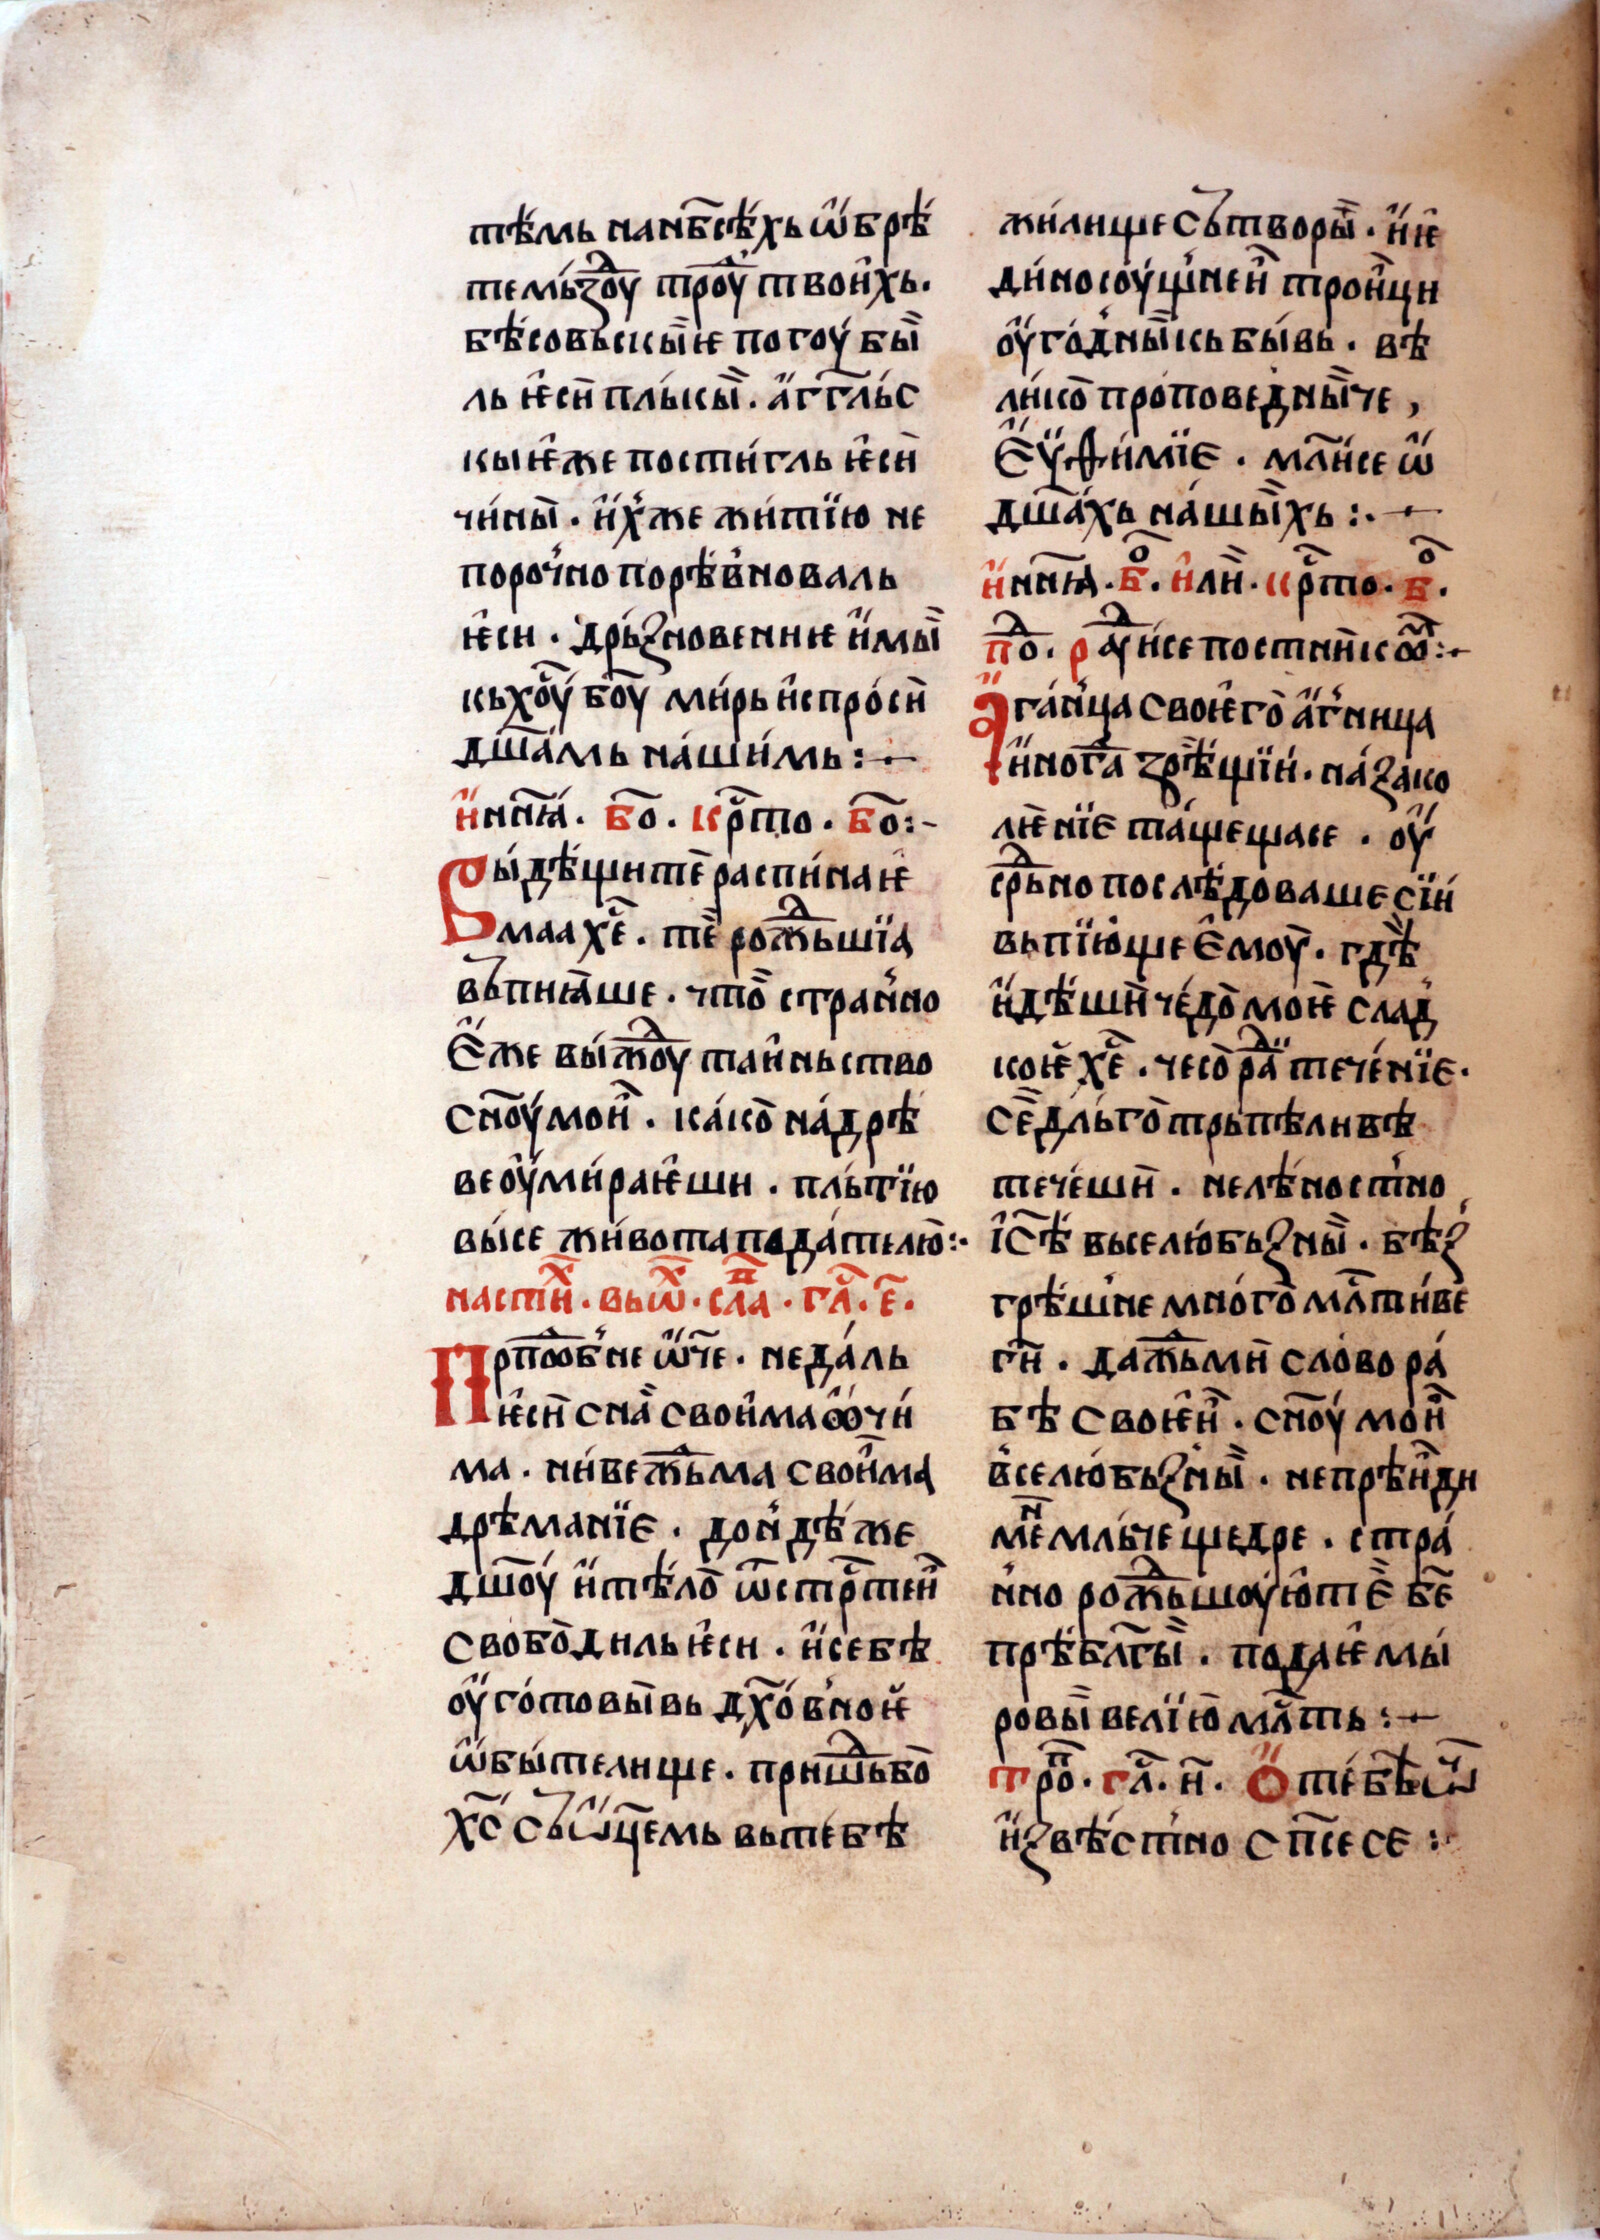 тѣ́мь на нб҃сѣ́хь ѡ҆҆брѣ́
те мь́здоу троу́д твои́хь.
бѣ́совьскы́ѥ погоу́бы̏
ль ѥ҆си̏ пль́кы̏. а҆́гг҃льс
кыѥ҆же пости́гль ѥ҆си̏
чи́ны̏. и҆́х́же житїю не
поро́чно порѣ́вноваль
ѥ҆си. дрь́зновенниѥ и҆мы̏
кь х҃оу́ б҃оу ми́рь и҆спро́си̏
дш҃а́мь на́ши́мь :·—
и҆ нн҃ꙗ. б҃о. кр҃то. б҃о :·-
Вы́дѣщи те̏ распи́наѥ
ма а х҃е. те̏ рождьшїа
въпиꙗше. что̏ стра́нно
є҆́же ви́ждоу таи́ньство
сн҃оу́ мои̏. ка́ко̏ на́ дрѣ
ве оу҆ми́раѥ҆ши. пль́тїю
вы́се живота пода́телю̏ :·
на стих. вьѡх. сла. гл҃. е҃.
Прпⷣобне ѡ҆́ч҃е. не да́ль
ѥ҆си̏ сна̏ свои́ма ѻ҆чи́
ма. ни́ веждьма свои̏ма
дрѣманїе. до́ндѣже
дш҃оу́ и҆ тѣ́ло̏ ѿ стр҃теи̏
свобо̏диль ѥ҆си. и҆ себѣ
оу҆го́товы̏вь дх҃о́вноѥ
ѡ҆бы́телище. пришьдь бо̏
х҃с съ ѡ҆ц҃емь вь тебѣ
жи́лище сътворы̏. и҆ ѥ҆
ди́носоу́щнеи̏ трои́ци
оу҆го́дны̏кь бы́вь. вѣ
ли́ко̏ пропове́дны̏че,
Є҆ѵ҆ѳи́мїе. мл҃и се ѡ҆
дш҃а́хь на́шы̏хь :·—
и҆ нн҃ꙗ. б҃о. и҆ли̏. кр҃то. б҃о.
по̏д. раⷣуи се постникѡⷨ :·-
А҆га́нца своѥ҆го̏ а҆́гница
и҆ногⷣа зре̏щїи. на́ зако
лѥ҆нїе та́щеща се. оу҆
срьдно послѣ́доваше сїи
вьпїю́ще є҆моу̏. гдѣ̏
и҆дѣши̏ че́до̏ моѥ̏ слад
коѥ х҃е. чесо̏ радⷣи тече́нїе.
се̏ дль́го̏трьпѣливѣ
тече́ши̏. нелѣ́ностно
і҆с҃ѣ вьселю́бьзны̏. бѣз
грѣ́шне мно́го̏ мл҃ти́ве
ги̏. даждь ми̏ сло́во ра́
бѣ своѥ҆и̏. сн҃оу́ мои̏
в́селю́бьзны̏. не прѣи̏ди
мене̏ мль́че щедре. стра́
нно рождьшоую́ те̏ бе҃
прѣ́бл҃гы̏. подаѥ҆ мы́
ровы̏ велїю̏ мл҃ть :·—
тро̏п. гл҃. и҃. Ѻ҆ те́бѣ ѡч҃
и҆звѣ́стно сп҃се се :·